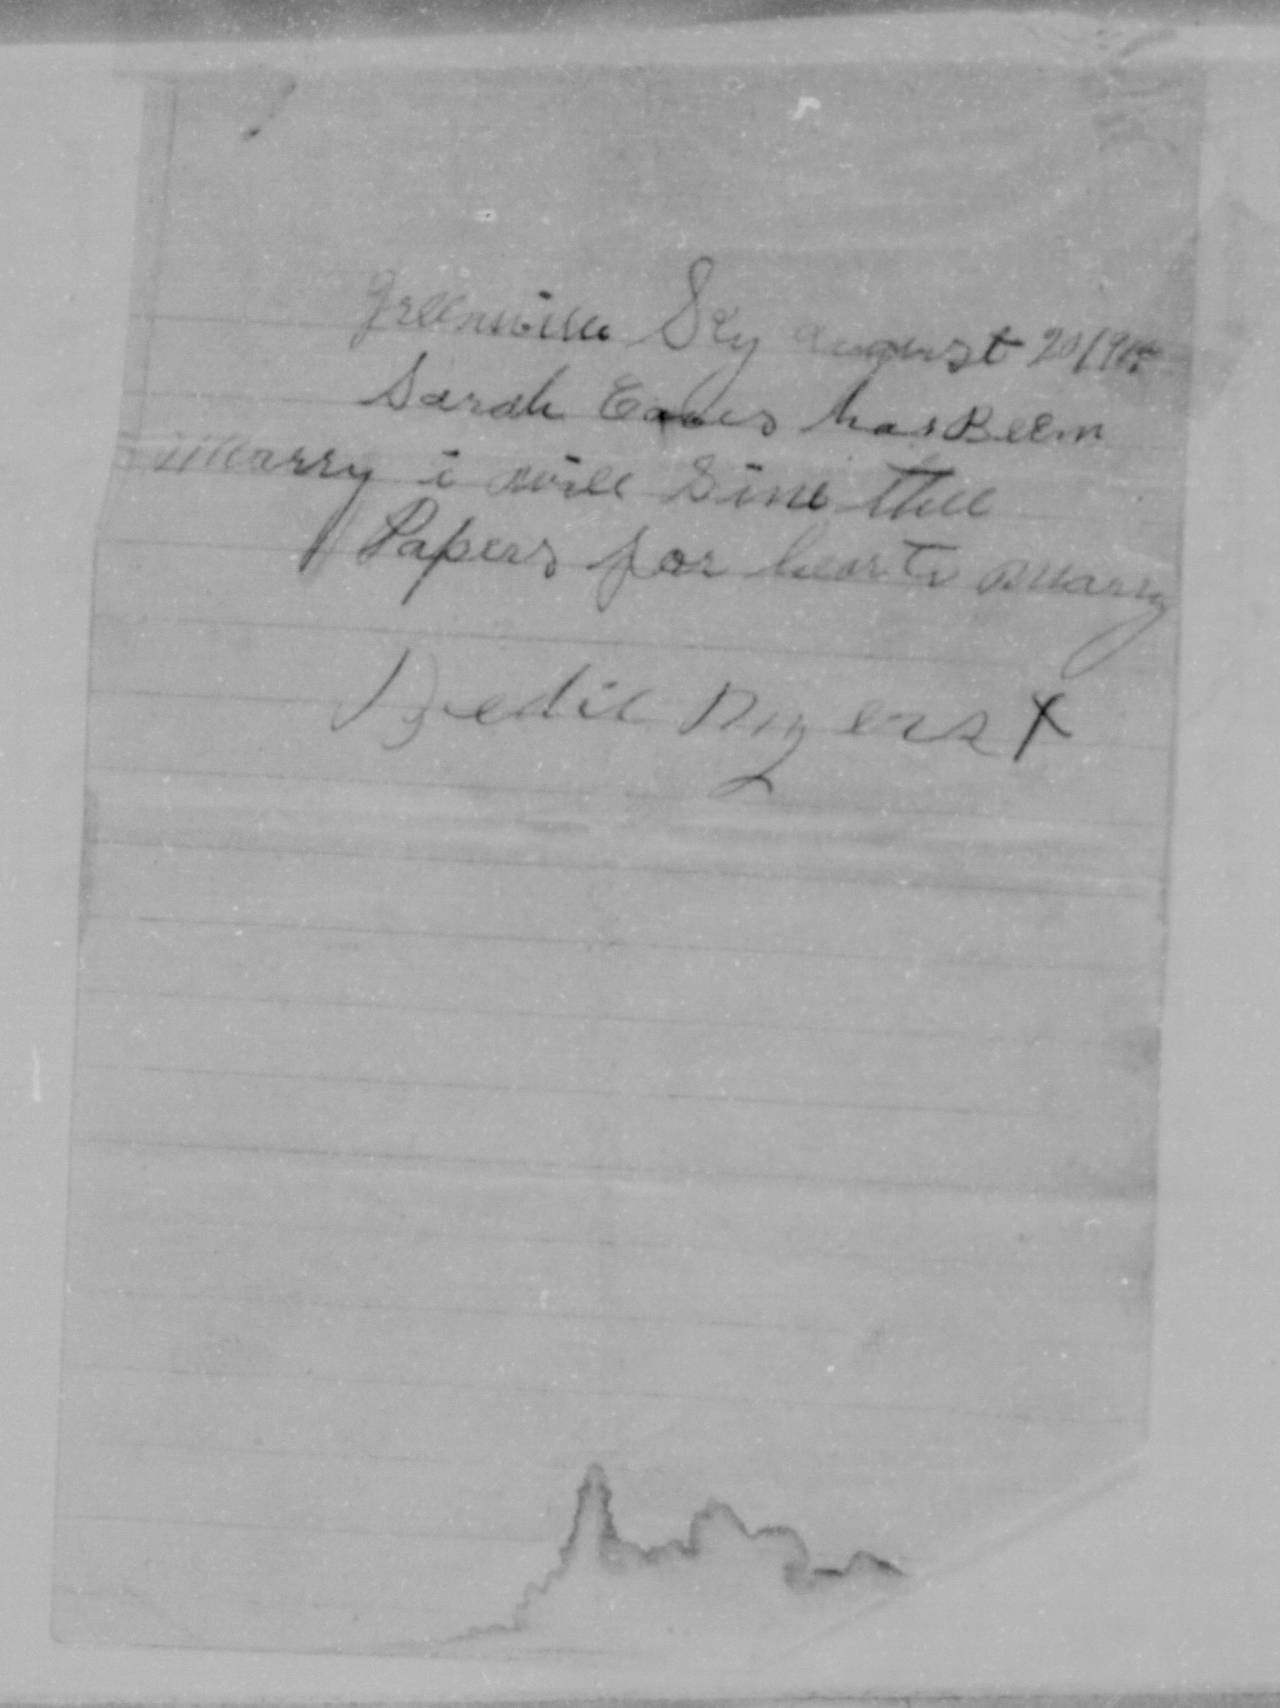 Greenville Ky august 20/190
Sarah Eaves has Beem
marry i will sine thee
Papers for hear to marry
Bedie Myers X